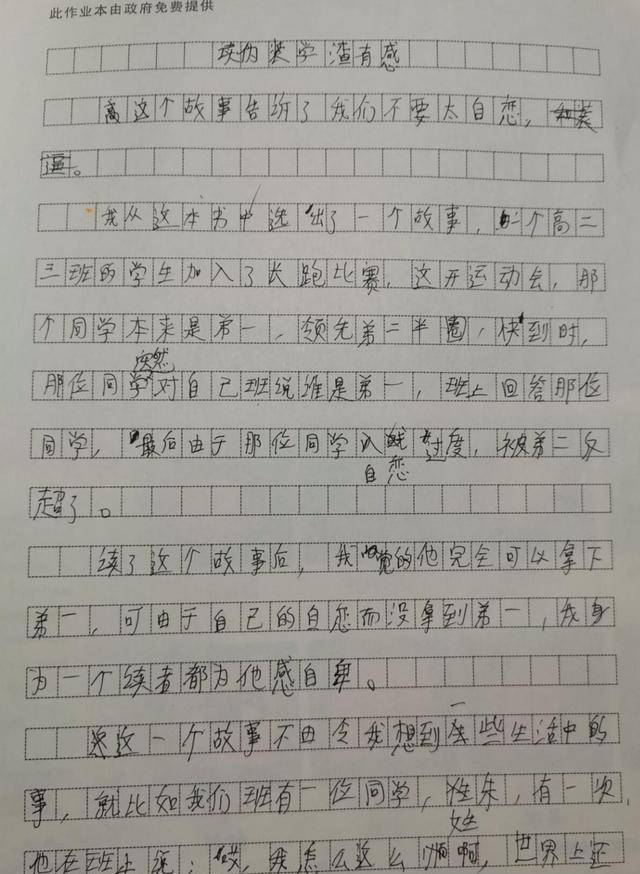 此作业本由政府免费提供
读伪装学渣有感
这个故事告诉了我们不要太自恋,
。
我从这本书中选出了一个故事,一个高二
三班的学生加入了长跑比赛,这开运动会,那
个同学本来是第一,领先第二半圈,快到时,
突然
那位同学对自己班说谁是第一,班上回答那位
同学,最后由于那位同学过度,被第二反
自恋
超了。
读了这个故事后,我觉的他完全可以拿下
第一,可由于自己的自恋而没拿到第一,我身
为一个读者都为他感自卑。
这一个故事不由令我想到一些生活中的
事,就比如我们班有一位同学,姓朱,有一次
他在班上说:哎,我怎么这么帅啊,世界上还